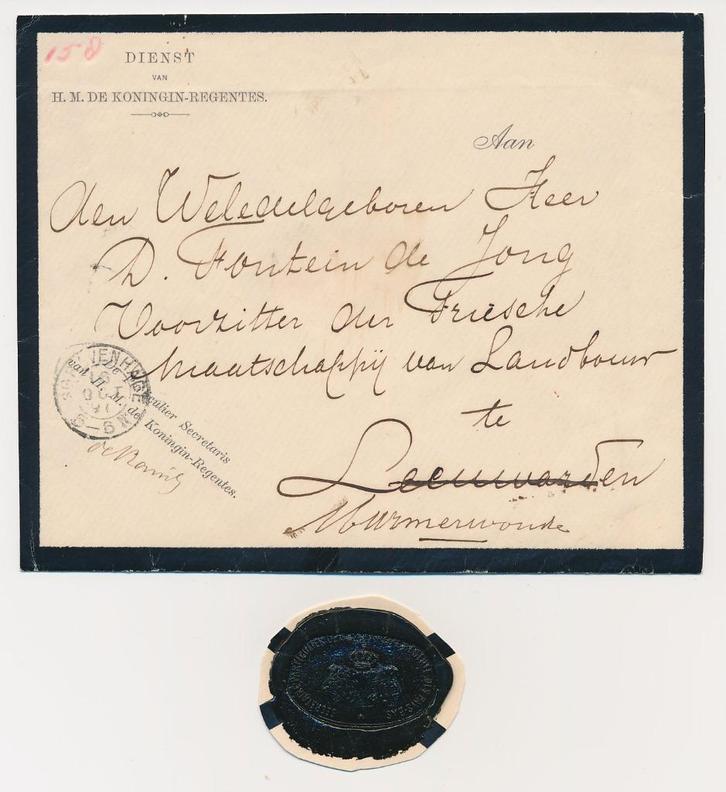 158
DIENST
VAN
H. M. DE KONINGIN-REGENTES.
Aan
den Weledelgeboren Heer
D. Fontein de Jong
Voorzitter der Friesche
Maatschappij van Landbouw
te
Leeuwarden
Murmerwoude
De culier Secretaris
van H. M. de Koningin-Regentes.